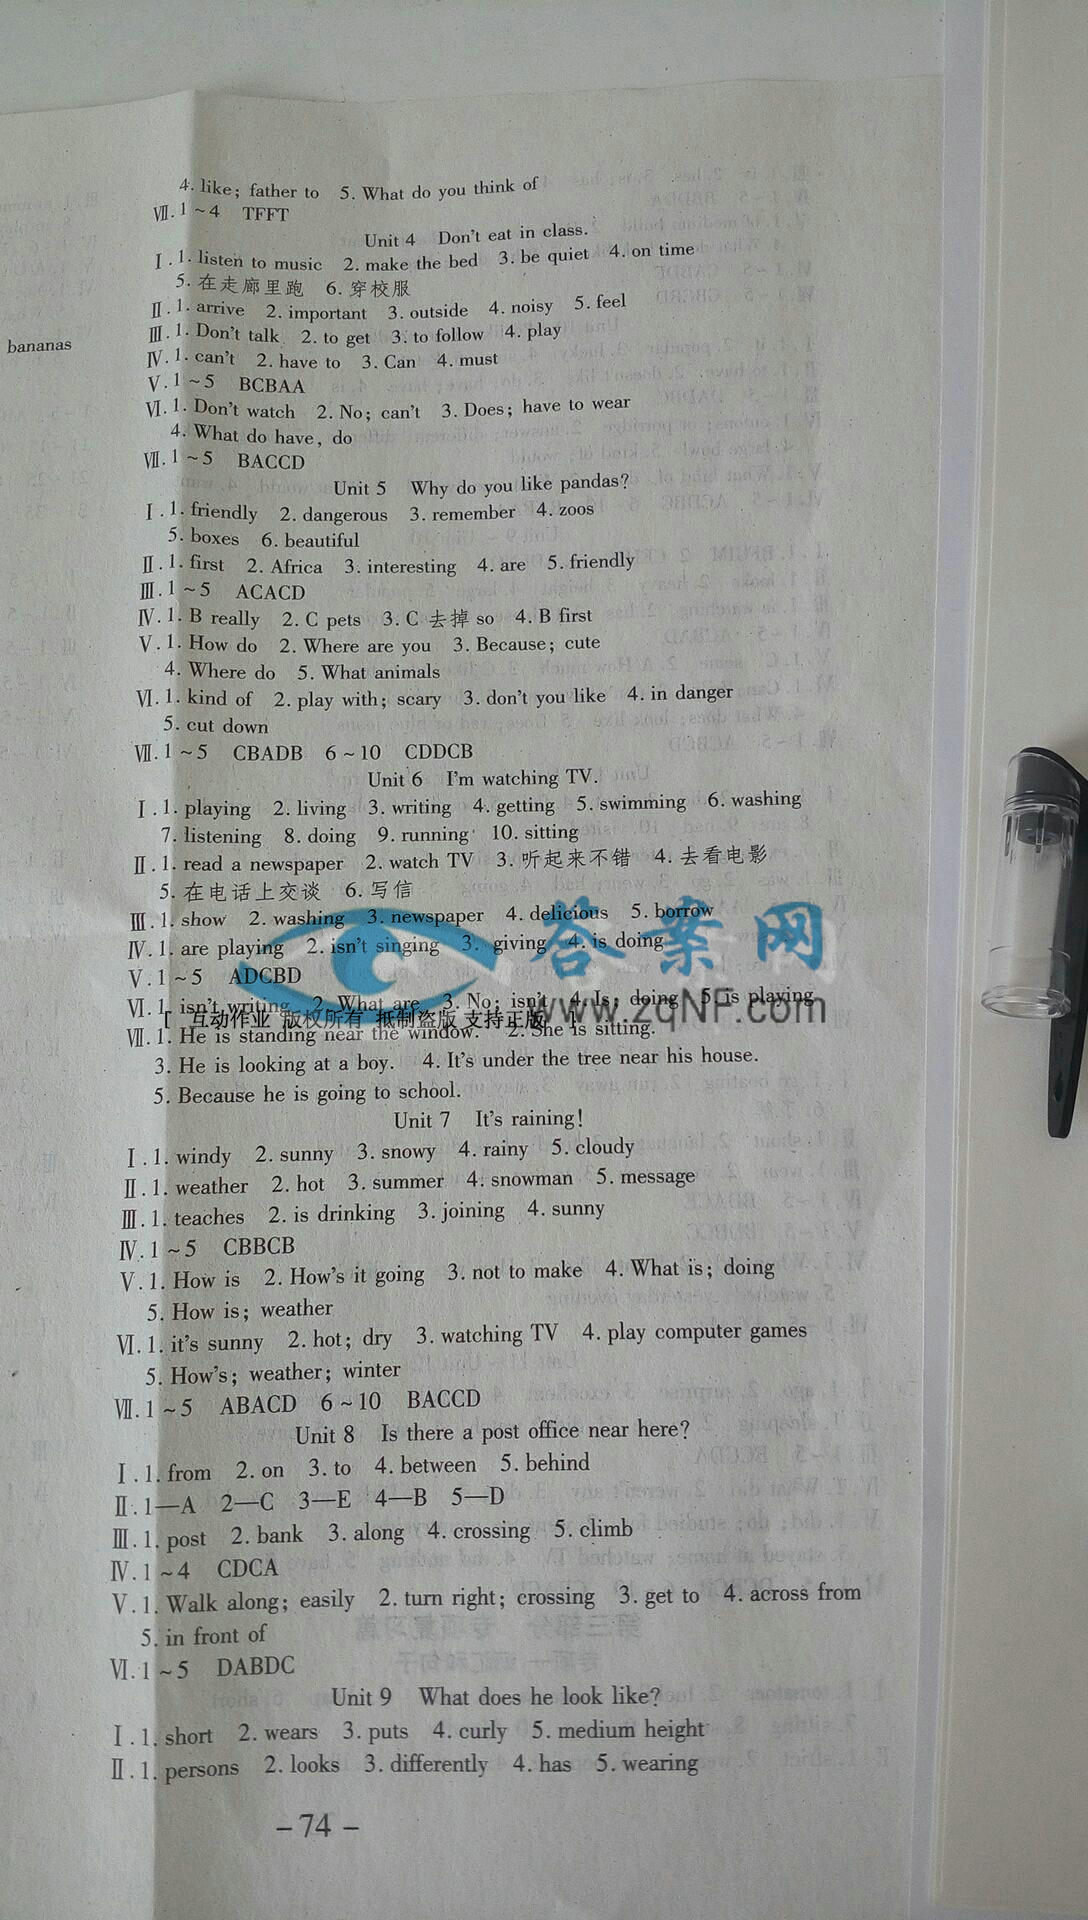 4. like; father to 5. What do you think of
Ⅶ. 1~4 TFFT
Unit 4 Don't eat in class.
Ⅰ. 1. listen to music 2. make the bed 3. be quiet 4. on time
5. 在走廊里跑 6. 穿校服
Ⅱ. 1. arrive 2. important 3. outside 4. noisy 5. feel
Ⅲ. 1. Don't talk 2. to get 3. to follow 4. play
Ⅳ. 1. can't 2. have to 3. Can 4. must
Ⅴ. 1~5 BCBAA
Ⅵ. 1. Don't watch 2. No; can't 3. Does; have to wear
4. What do have, do
Ⅶ. 1~5 BACCD
Unit 5 Why do you like pandas?
Ⅰ. 1. friendly 2. dangerous 3. remember 4. zoos
5. boxes 6. beautiful
Ⅱ. 1. first 2. Africa 3. interesting 4. are 5. friendly
Ⅲ. 1~5 ACACD
Ⅳ. 1. B really 2. C pets 3. C 去掉 so 4. B first
Ⅴ. 1. How do 2. Where are you 3. Because; cute
4. Where do 5. What animals
Ⅵ. 1. kind of 2. play with; scary 3. don't you like 4. in danger
5. cut down
Ⅶ. 1~5 CBADB 6~10 CDDCB
Unit 6 I'm watching TV.
Ⅰ. 1. playing 2. living 3. writing 4. getting 5. swimming 6. washing
7. listening 8. doing 9. running 10. sitting
Ⅱ. 1. read a newspaper 2. watch TV 3. 听起来不错 4. 去看电影
5. 在电话上交谈 6. 写信
Ⅲ. 1. show 2. washing 3. newspaper 4. delicious 5. borrow
Ⅳ. 1. are playing 2. isn't singing 3. giving 4. is doing
Ⅴ. 1~5 ADCBD
Ⅵ. 1. isn't writing 2. What are 3. No; isn't 4. Is; doing 5. is playing
Ⅶ. 1. He is standing near the window. 2. She is sitting.
3. He is looking at a boy. 4. It's under the tree near his house.
5. Because he is going to school.
Unit 7 It's raining!
Ⅰ. 1. windy 2. sunny 3. snowy 4. rainy 5. cloudy
Ⅱ. 1. weather 2. hot 3. summer 4. snowman 5. message
Ⅲ. 1. teaches 2. is drinking 3. joining 4. sunny
Ⅳ. 1~5 CBBCB
Ⅴ. 1. How is 2. How's it going 3. not to make 4. What is; doing
5. How is; weather
Ⅵ. 1. it's sunny 2. hot; dry 3. watching TV 4. play computer games
5. How's; weather; winter
Ⅶ. 1~5 ABACD 6~10 BACCD
Unit 8 Is there a post office near here?
Ⅰ. 1. from 2. on 3. to 4. between 5. behind
Ⅱ. 1—A 2—C 3—E 4—B 5—D
Ⅲ. 1. post 2. bank 3. along 4. crossing 5. climb
Ⅳ. 1~4 CDCA
Ⅴ. 1. Walk along; easily 2. turn right; crossing 3. get to 4. across from
5. in front of
Ⅵ. 1~5 DABDC
Unit 9 What does he look like?
Ⅰ. 1. short 2. wears 3. puts 4. curly 5. medium height
Ⅱ. 1. persons 2. looks 3. differently 4. has 5. wearing
– 74 –
bananas
答案网
www.zqNF.com
互动作业 版权所有 抵制盗版 支持正版